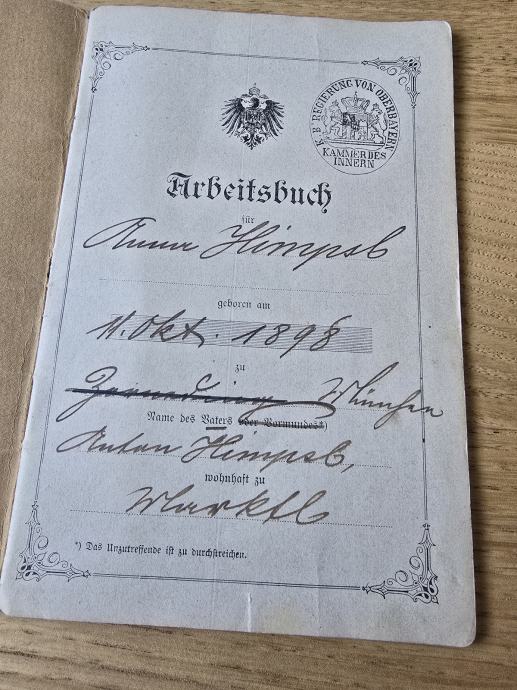 K. B. REGIERUNG VON OBERBAYERN
KAMMER DES
INNERN
Arbeitsbuch
für
Anna Himpsl
geboren am
11. Okt. 1898
zu
München
Name des Vaters oder Vormundes*)
Anton Himpsl,
wohnhaft zu
Marktl
*) Das Unzutreffende ist zu durchstreichen.